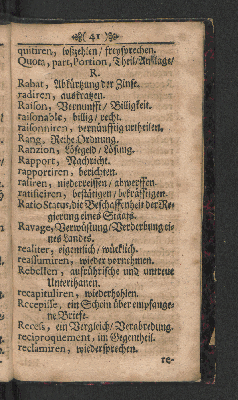 41
quitiren, loszehlen / freysprechen.
Quota, part, Portion, Theil / Anlage /
R.
Rabat, Abkürtzung der Zinse.
radiren, auskratzen.
Raison, Vernunfft / Billigkeit.
raisonable, billig / recht.
raisonniren, vernünfftig urtheilen.
Rang, Reihe. Ordnung.
Ranzion, Lösegeld / Lösung.
Rapport, Nachricht.
rapportiren, berichten.
rasiren, niederreissen / abwerffen.
ratificiren, bestätigen / bekräfftigen.
Ratio Status, die Beschaffenheit der Re-
gierung eines Staats.
Ravage, Verwüstung / Verderbung ei-
nes Landes.
realiter, eigentlich / würcklich.
reassumiren, wieder vornehmen.
Rebellen, aufrührische und untreue
Unterthanen.
recapituliren, wiederhohlen.
Recepisse, ein Schein über empfange-
ne Briefe.
Recess, ein Vergleich / Verabredung.
reciproquement, im Gegentheil.
reclamiren, wiedersprechen.
re-